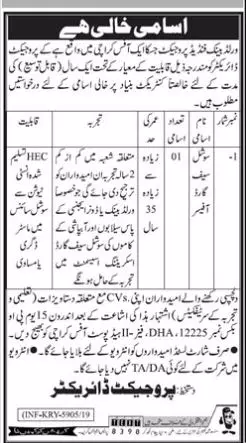 اسامی خالی ہے
ورلڈ بینک فنڈیڈ پروجیکٹ جسکا ایک آفس کراچی میں واقع ہے کے پروجیکٹ
ڈائریکٹر کو مندرجہ ذیل قابلیت کے معیار کے تحت ایک سال (قابل توسیع) کی
مدت کے لئے خالصتاً کنٹریکٹ بنیاد پر خالی اسامی کے لئے درخواستیں
مطلوب ہیں۔
نمبر شمار نام اسامی تعداد اسامی عمر کی حد تجربہ قابلیت
1- سوشل سیف گارڈ آفیسر 01 زیادہ سے زیادہ 35 سال متعلقہ شعبہ میں کم از کم 2 سالہ تجربہ ان امیدواران کو ترجیح دی جائے گی جو خصوصاً ورلڈ بینک یا ڈونر ایجنسی کے پاس سیلابوں اور آبپاشی کے کاموں کی سوشل سیف گارڈ اسکریننگ اسیسمنٹ میں تجربہ کے حامل ہونگے HEC تسلیم شدہ انسٹی ٹیوشن سے سوشل سائنس میں ماسٹر ڈگری یا مساوی
دلچسپی رکھنے والے امیدواران اپنی CVs مع متعلقہ دستاویزات (تعلیمی و
تجربہ کے سرٹیفکیٹس) اشاعت کے بعد اندر 15 یوم پی او
بکس نمبر 12225، DHA، فیز-II پوسٹ آفس کراچی کو بھیج دیں۔
• صرف شارٹ لسٹڈ امیدواروں کو انٹرویو کے لئے بلایا جائے گا۔ • انٹرویو
میں شرکت کے لئے کوئی TA/DA نہیں دیا جائے گا۔
دستخط: پروجیکٹ ڈائریکٹر
(INF-KRY-5905/19)
8398